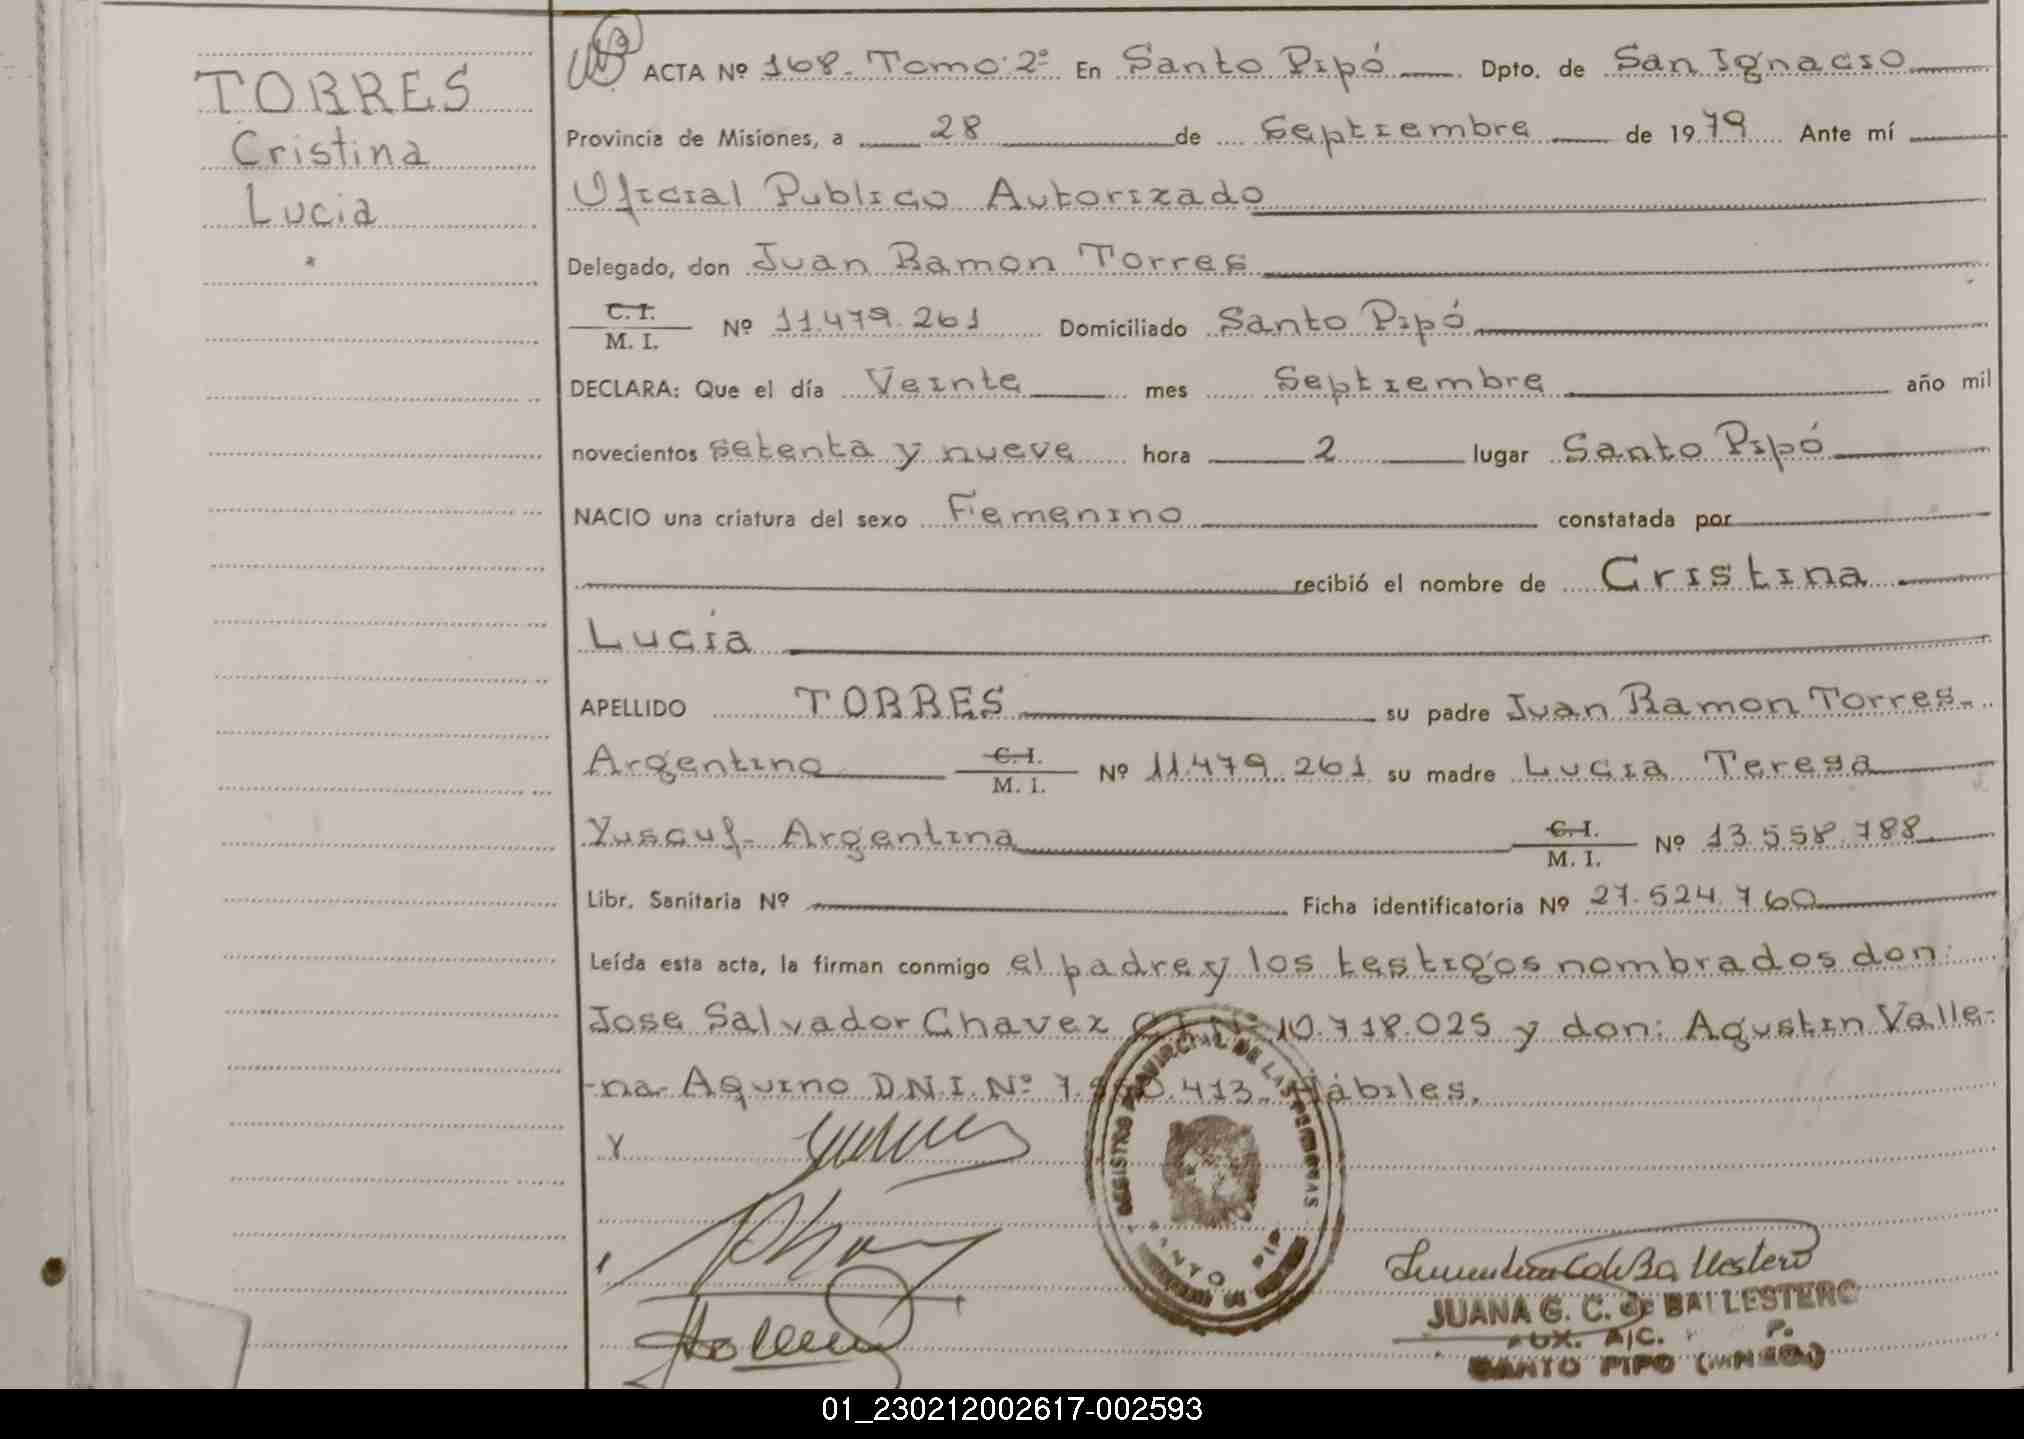 TORRES
Cristina
Lucia
*
ACTA Nº 168. Tomo 2º En Santo Pipó Dpto. de San Ignacio
Provincia de Misiones, a 28 de Septiembre de 1979 Ante mí
Oficial Publico Autorizado
Delegado, don Juan Ramon Torres
C. I.
M. I. Nº 11.479.261 Domiciliado Santo Pipó
DECLARA: Que el día Veinte mes Septiembre año mil
novecientos setenta y nueve hora 2 lugar Santo Pipó
NACIO una criatura del sexo Femenino constatada por
recibió el nombre de Cristina
Lucía
APELLIDO TORRES su padre Juan Ramon Torres.
Argentino C. I. M. I. Nº 11.479.261 su madre Lucia Teresa
Yuscuf- Argentina C. I. M. I. Nº 13.558.788
Libr. Sanitaria Nº Ficha identificatoria Nº 27.524.760
Leída esta acta, la firman conmigo el padre y los testigos nombrados don:
Jose Salvador Chavez Nº 10.718.025 y don: Agustin Valle-
-na- Aquino D.N.I. Nº 413. Hábiles.
REGISTRO PROVINCIAL DE LAS PERSONAS
SANTO PIPO
JUANA G. C. de BALLESTERO
AUX. A/C. P.
SANTO PIPO (MNES)
01_230212002617-002593